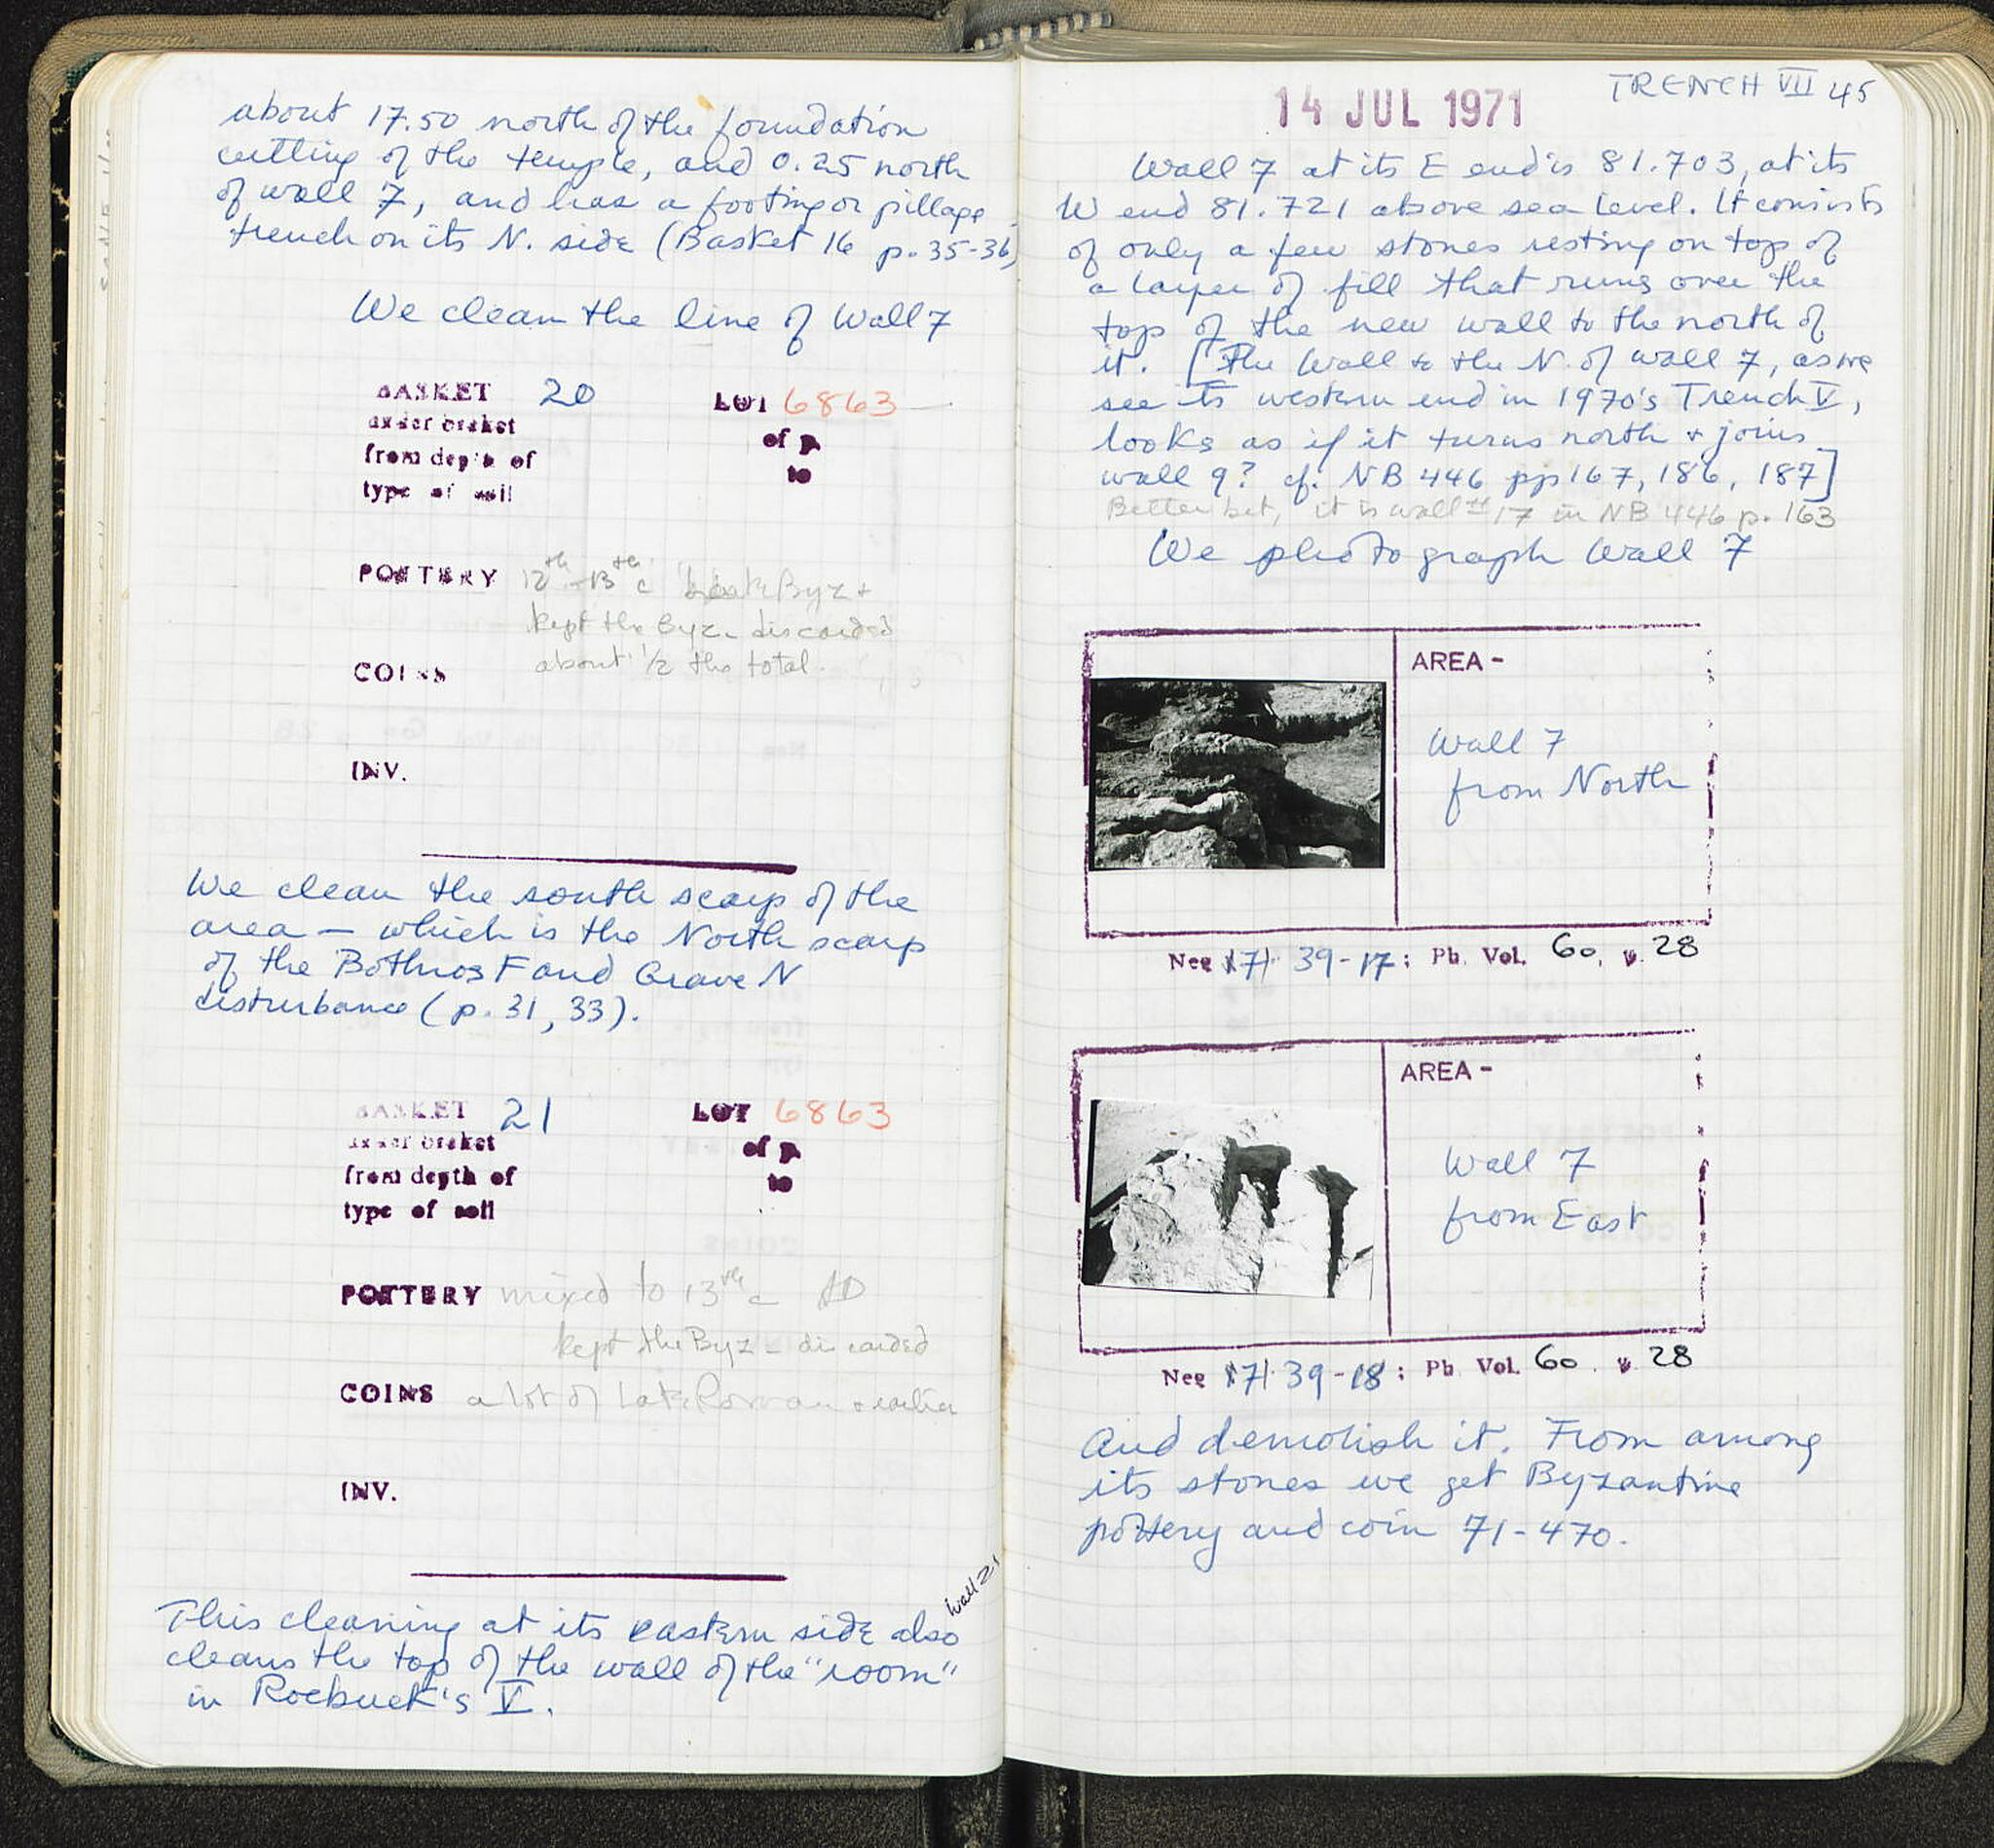 about 17.50 north of the foundation
cutting of the temple, and 0.25 north
of wall 7, and has a footing or pillage
trench on its N. side (Basket 16 p. 35-36)
We clean the line of Wall 7
BASKET 20 LOT 6863
under basket of p.
from depth of to
type of soil
POTTERY 12th-13th c Byz +
kept the Byz - discarded
about 1/2 the total.
COINS
INV.
We clean the south scarp of the
area — which is the North scarp
of the Bothros F and Grave N
disturbance (p. 31, 33).
BASKET 21 LOT 6863
under basket of p.
from depth of to
type of soil
POTTERY mixed to 13th c AD
kept the Byz - discarded
COINS a lot of Late Roman + earlier
INV.
wall 21
This cleaning at its eastern side also
cleans the top of the wall of the "room"
in Roebuck's V.
TRENCH VII 45
14 JUL 1971
Wall 7 at its E end is 81.703, at its
W end 81.721 above sea level. It consists
of only a few stones resting on top of
a layer of fill that runs over the
top of the new wall to the north of
it. [The Wall to the N. of wall 7, as we
see its western end in 1970's Trench V,
looks as if it turns north + joins
wall 9? cf. NB 446 pp 167, 186, 187]
Better bet, it is wall # 17 in NB 446 p. 163
We photograph Wall 7
AREA -
Wall 7
from North
Neg 71 39-17; Ph. Vol. 60, p. 28
AREA -
Wall 7
from East
Neg 71 39-18; Ph. Vol. 60, p. 28
And demolish it. From among
its stones we get Byzantine
pottery and coin 71-470.